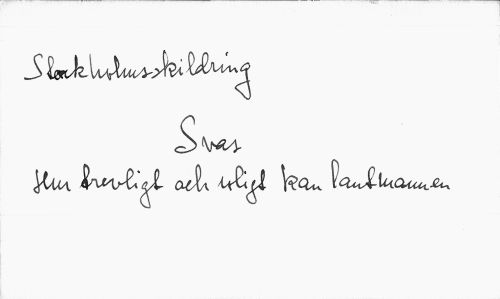 Stockholmsskildring
Svas
Hur trevligt och roligt kan lantmannen